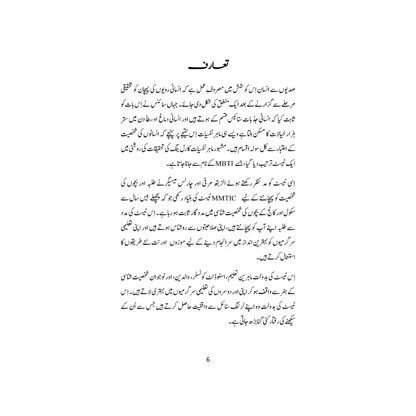 تعارف
صدیوں سے انسان اِس کوشش میں مصروفِ عمل ہے کہ انسانی رویوں کی پہچان کو تحقیقی
مرحلے سے گزارنے کے بعد ایک منطق کی شکل دی جائے۔ جہاں سائنس نے اِس بات کو
ثابت کیا کہ انسانی جذبات ستائیس قسم کے ہوتے ہیں اور انسانی دماغ اوسطاً دن میں ستر
ہزار خیالات کا مسکن بنتا ہے ویسے ہی ماہرِ نفسیات اِس نتیجے پر پہنچے کہ انسانوں کی شخصیت
کے اعتبار سے کل سولہ اقسام ہیں۔ مشہور ماہرِ نفسیات کارل ینگ کی تحقیقات کی روشنی میں
ایک ٹیسٹ ترتیب دیا گیا، جسے MBTI کے نام سے جانا جاتا ہے۔
اِسی ٹیسٹ کو مدِ نظر رکھتے ہوئے الزبتھ مرفی اور چارلس میسگیر نے طلبہ اور بچوں کی
شخصیت کو پہچاننے کے لیے MMTIC ٹیسٹ کی بنیاد رکھی جو کہ پچھلے بیس سال سے
سکول اور کالج کے بچوں کی شخصیت شناسی میں مددگار ثابت ہو رہا ہے۔ اِس ٹیسٹ کی مدد
سے طلبہ اپنے آپ کو پہچانتے ہیں، اپنی صلاحیتوں سے روشناس ہوتے ہیں اور اپنی تعلیمی
سرگرمیوں کو بہترین انداز میں سرانجام دینے کے لیے موزوں اور نت نئے طریقوں کا
استعمال کرتے ہیں۔
اِس ٹیسٹ کی بدولت ماہرینِ تعلیم، اسٹوڈنٹ کونسلر، والدین، اور نوجوان شخصیت شناسی
کے ہنر سے واقف ہو کر اپنی اور دوسروں کی تعلیمی سرگرمیوں میں بہتری لاتے ہیں۔ اِس
ٹیسٹ کی بدولت وہ اپنے لرننگ سٹائل سے واقفیت حاصل کرتے ہیں جس سے اُن کے
سیکھنے کی رفتار کئی گنا بڑھ جاتی ہے۔
6